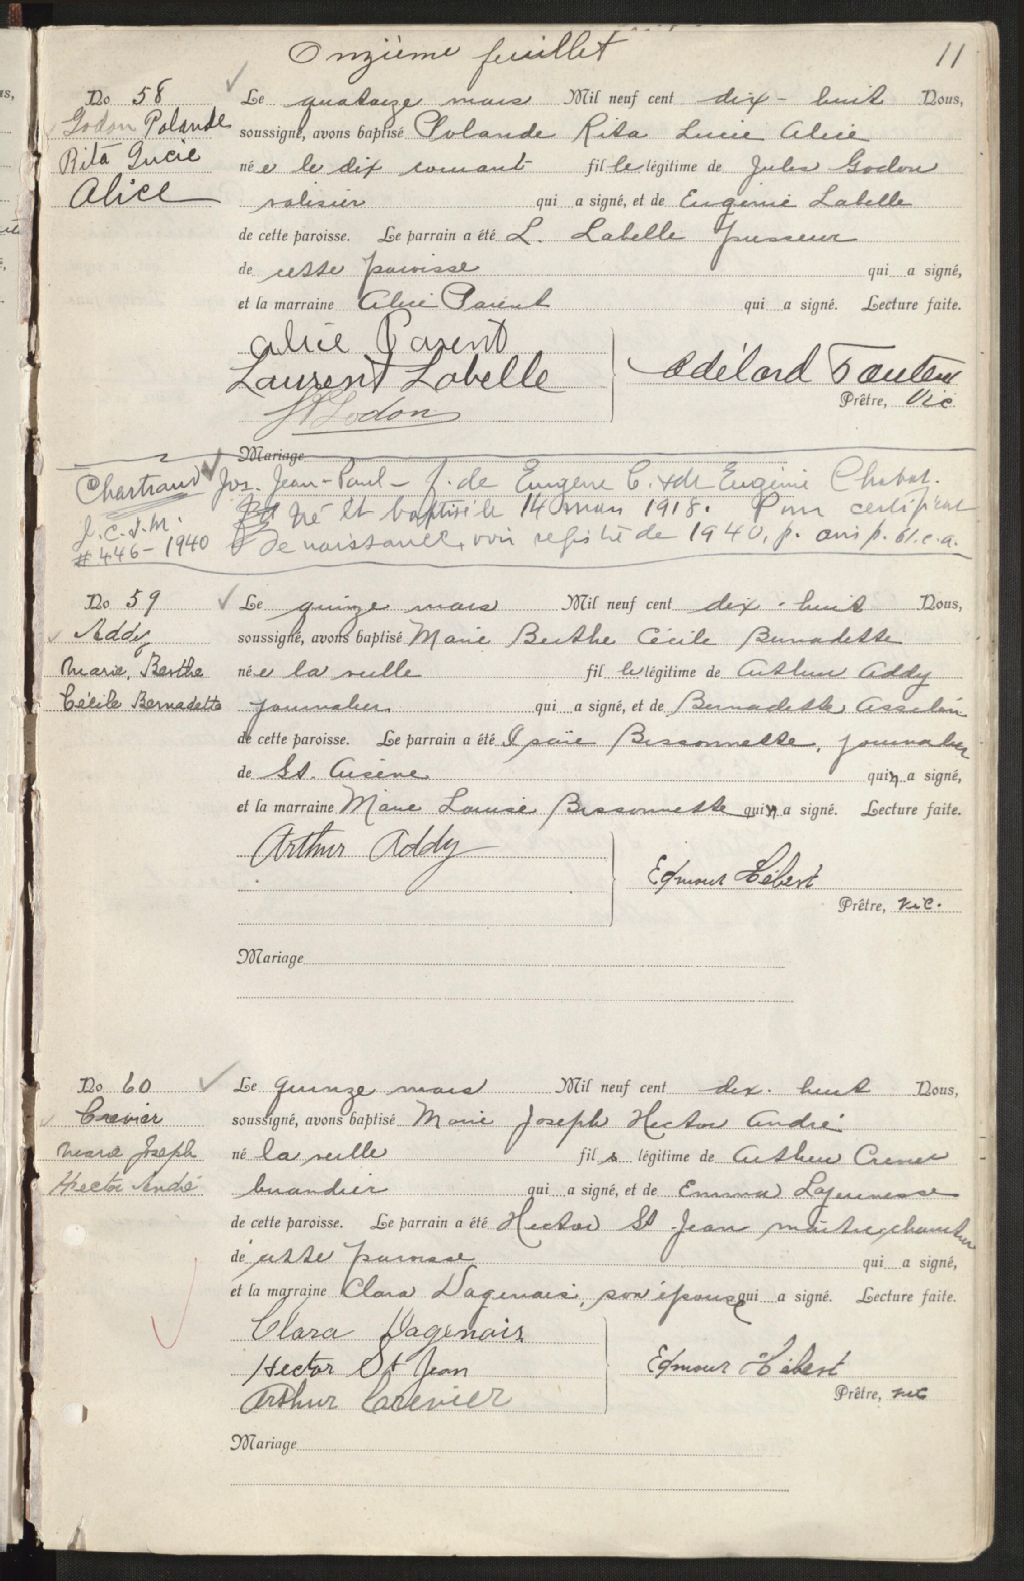 Onzième feuillet
11
No 58
Godon Rolande
Rita Lucie
Alice
Le quatorze mars Mil neuf cent dix-huit Nous,
soussigné, avons baptisé Rolande Rita Lucie Alice
née le dix courant fille légitime de Jules Godon
valisier qui a signé, et de Eugénie Labelle
de cette paroisse. Le parrain a été L. Labelle presseur
de cette paroisse qui a signé,
et la marraine Alice Parent qui a signé. Lecture faite.
Alice Parent
Laurent Labelle
Godon
Adélard
Prêtre, Vic
Mariage
Chartrand Jos. Jean-Paul - f. de Eugène C. & de Eugénie Chabot.
né et baptisé le 14 mars 1918. Pour certificat
de naissance, voir registre de 1940, p.
J.C.J.M.
#446-1940
No 59
Addy
Marie, Berthe
Cécile Bernadette
Le quinze mars Mil neuf cent dix-huit Nous,
soussigné, avons baptisé Marie Berthe Cécile Bernadette
née la veille fille légitime de Arthur Addy
journalier qui a signé, et de Bernadette Asselin
de cette paroisse. Le parrain a été Isaïe Bissonnette, journalier
de St. Arsène qui n a signé,
et la marraine Marie Louise Bissonnette qui n a signé. Lecture faite.
Arthur Addy
Edmour Hébert
Prêtre, vic.
Mariage
No 60
Crevier
Marie Joseph
Hector André
Le quinze mars Mil neuf cent dix-huit Nous,
soussigné, avons baptisé Marie Joseph Hector André
né la veille fils légitime de Arthur Crevier
buandier qui a signé, et de Emma Lajeunesse
de cette paroisse. Le parrain a été Hector St Jean maître-charretier
de cette paroisse qui a signé,
et la marraine Clara Dagenais, son épouse qui a signé. Lecture faite.
Clara Dagenais
Hector St Jean
Arthur Crevier
Edmour Hébert
Prêtre, vic
Mariage